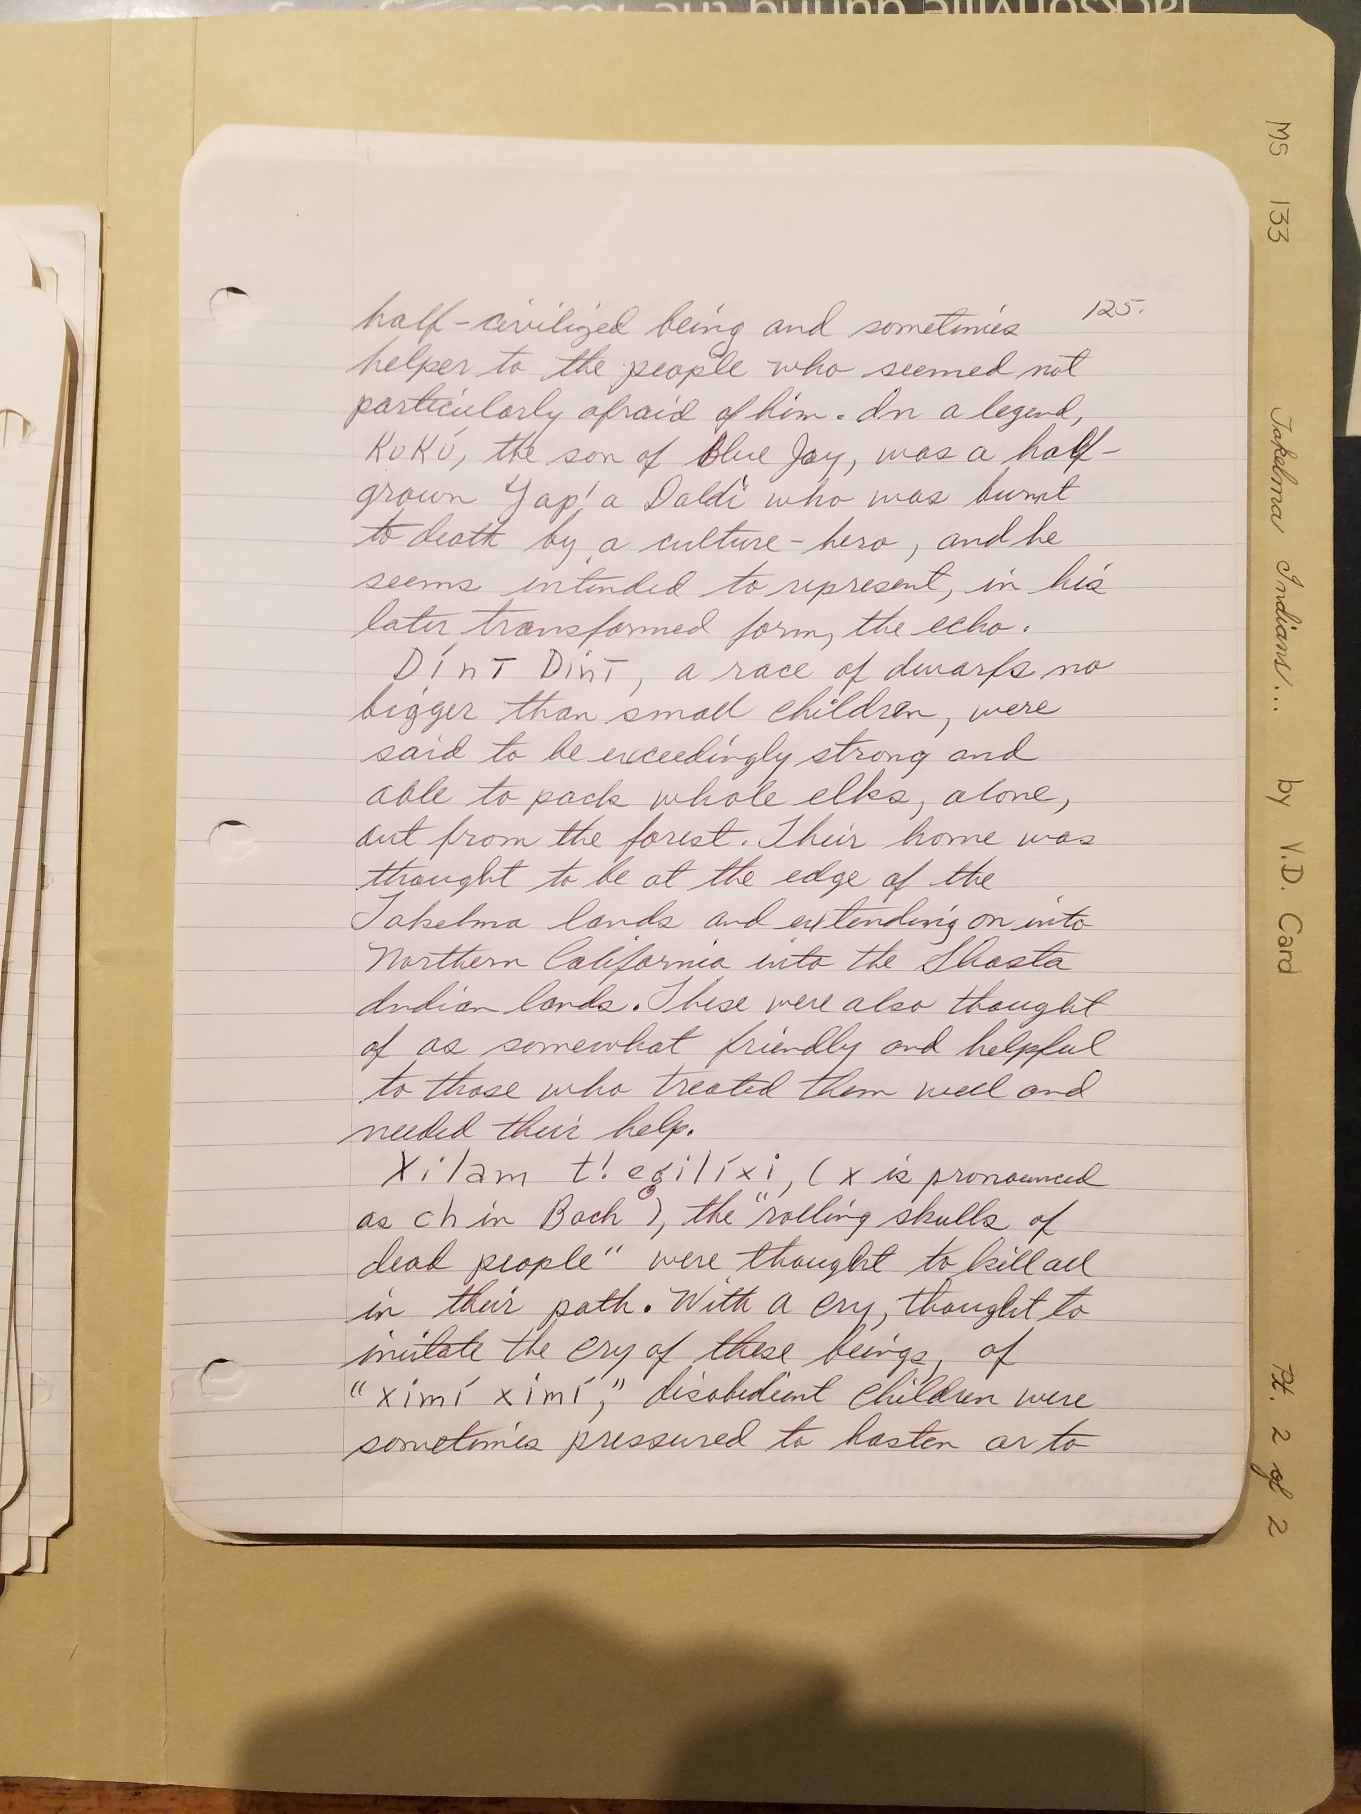 125.
half-civilized being and sometimes
helper to the people who seemed not
particularly afraid of him. In a legend,
KuKú, the son of Blue Jay, was a half-
grown Yap!a Daldì who was burnt
to death by a culture-hero, and he
seems intended to represent, in his
later transformed form, the echo.
DínT DinT, a race of dwarfs no
bigger than small children, were
said to be exceedingly strong and
able to pack whole elks, alone,
out from the forest. Their home was
thought to be at the edge of the
Takelma lands and extending on into
Northern California into the Shasta
Indian lands. These were also thought
of as somewhat friendly and helpful
to those who treated them well and
needed their help.
Xilam t!egilíxi, (x is pronounced
as ch in Bach), the "rolling skulls of
dead people" were thought to kill all
in their path. With a cry, thought to
imitate the cry of these beings, of
"ximí ximí," disobedient children were
sometimes pressured to hasten or to
MS 133 Takelma Indians... by V.D. Card Pt. 2 of 2